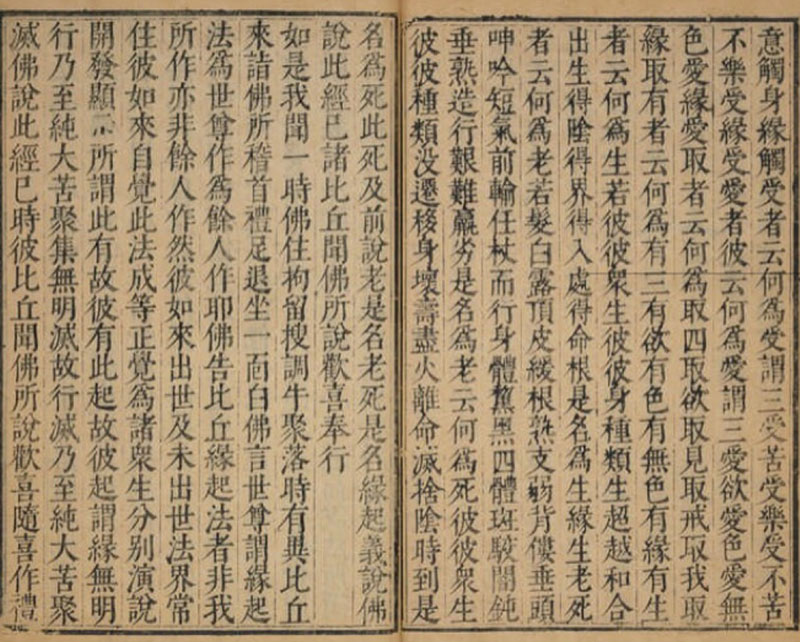 意觸身緣觸受者云何爲受謂三受苦受樂受不苦
不樂受緣受愛者彼云何爲愛謂三愛欲愛色愛無
色愛緣愛取者云何爲取四取欲取見取戒取我取
緣取有者云何爲有三有欲有色有無色有緣有生
者云何爲生若彼彼衆生彼彼身種類生超越和合
出生得陰得界得入處得命根是名爲生緣生老死
者云何爲老若髮白露頂皮緩根熟支弱背僂垂頭
呻吟短氣前輸任杖而行身體黧黑四體斑駮闇鈍
垂熟造行艱難羸劣是名爲老云何爲死彼彼衆生
彼彼種類没遷移身壞壽盡火離命滅捨陰時到是
名爲死此死及前說老是名老死是名緣起義說佛
說此經已諸比丘聞佛所說歡喜奉行
如是我聞一時佛住拘留搜調牛聚落時有異比丘
來詣佛所稽首禮足退坐一面白佛言世尊謂緣起
法爲世尊作爲餘人作耶佛告比丘緣起法者非我
所作亦非餘人作然彼如來出世及未出世法界常
住彼如來自覺此法成等正覺爲諸衆生分别演說
開發顯示所謂此有故彼有此起故彼起謂緣無明
行乃至純大苦聚集無明滅故行滅乃至純大苦聚
滅佛說此經已時彼比丘聞佛所說歡喜隨喜作禮